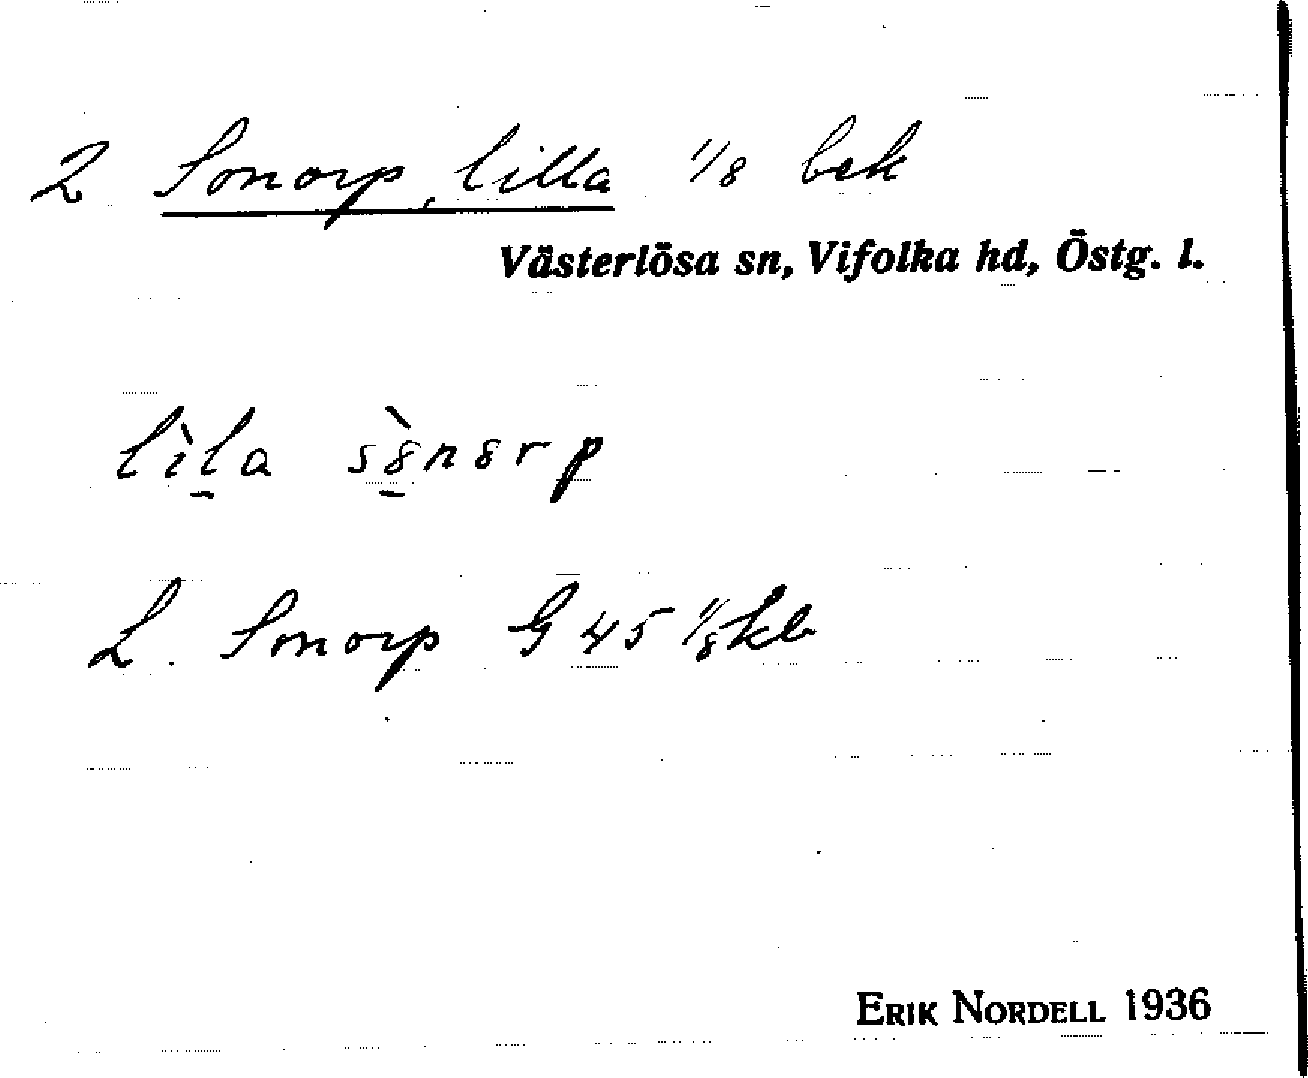 2 Sonorp, lilla 1/8 bek
Västerlösa sn, Vifolka hd, Östg. l.
lìla s8̀n8rp
L. Sonorp G 45 1/8 kb
ERIK NORDELL 1936